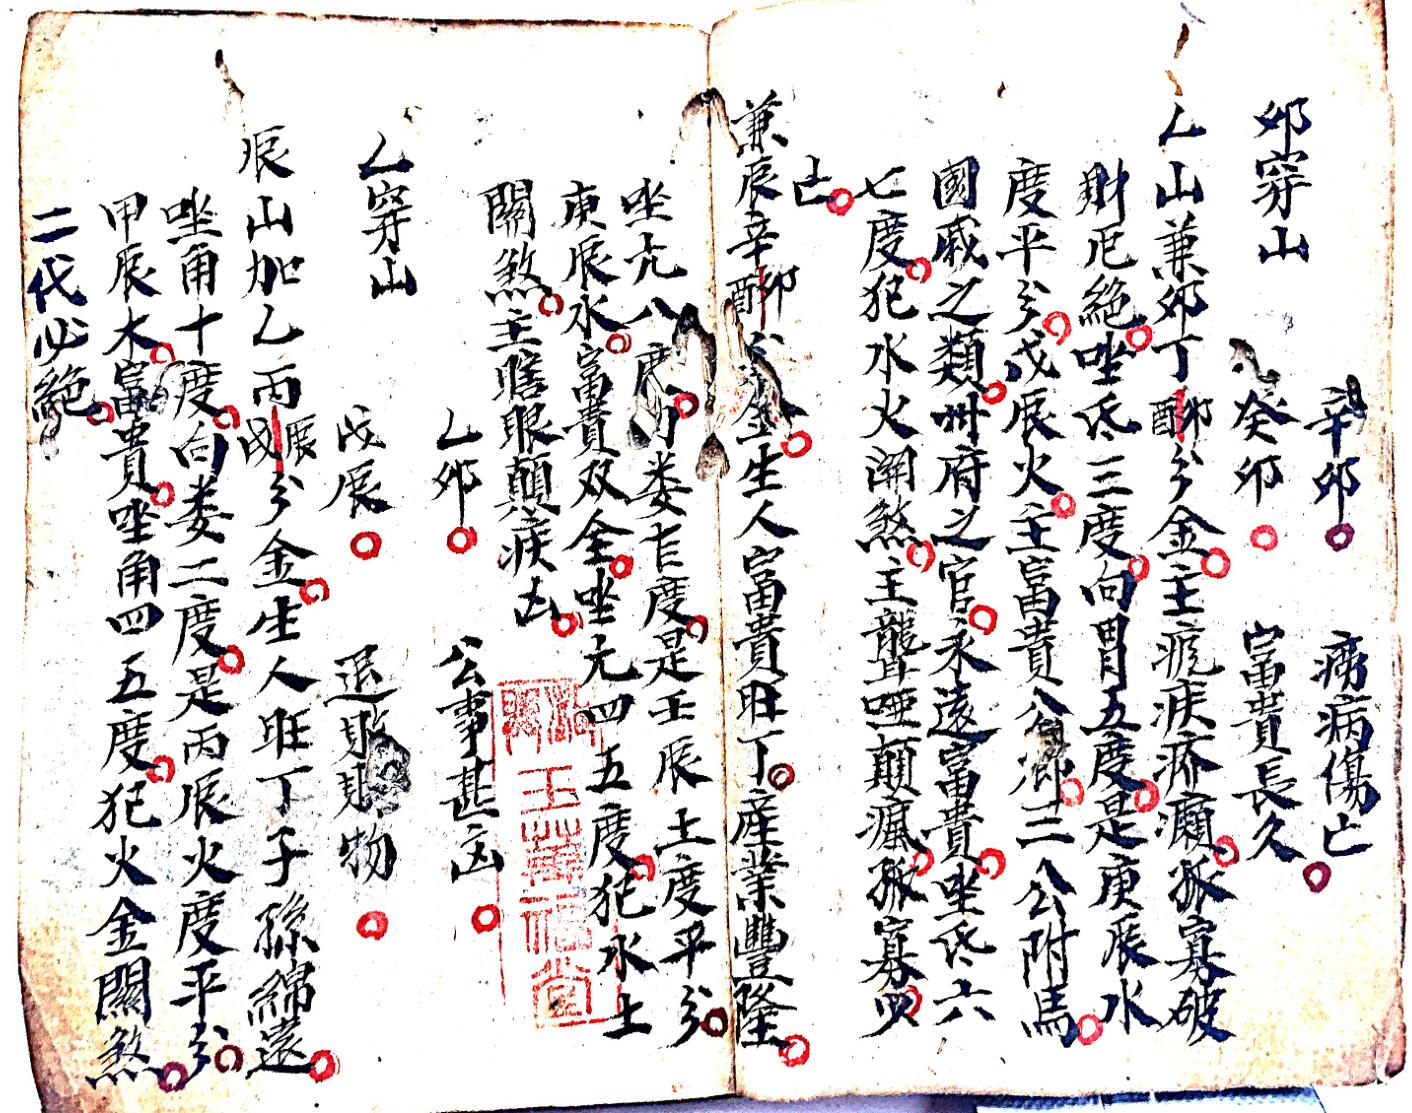 辛卯 癆病傷亡
癸卯 富貴長久
卯穿山
乙山兼卯丁卯酉分金主疯疾疥癩孤寡破
財厄絕坐氐三度向胃五度是庚辰水
度平分戊辰火主富貴公卿三公附馬
國戚之類州府之官永遠富貴坐氐六
七度犯水火関煞主聾啞顛瘋孤寡少
亡
兼辰辛卯酉分金生人富貴旺丁産業豐隆
坐亢八度向娄七度是壬辰土度平分
庚辰水富貴双全坐亢四五度犯水土
關煞主瞎眼顛疾凶
乙卯 公事甚凶
戊辰 退財物
乙穿山
辰山加乙丙辰戌分金生人旺丁子孫綿遠
坐角十度向娄二度是丙辰火度平分
甲辰木富貴坐角四五度犯火金關煞
二代必絕
玉萬福堂